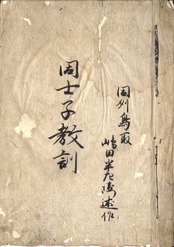 因州鳥取
嶋田半左衛述作
周士子教訓